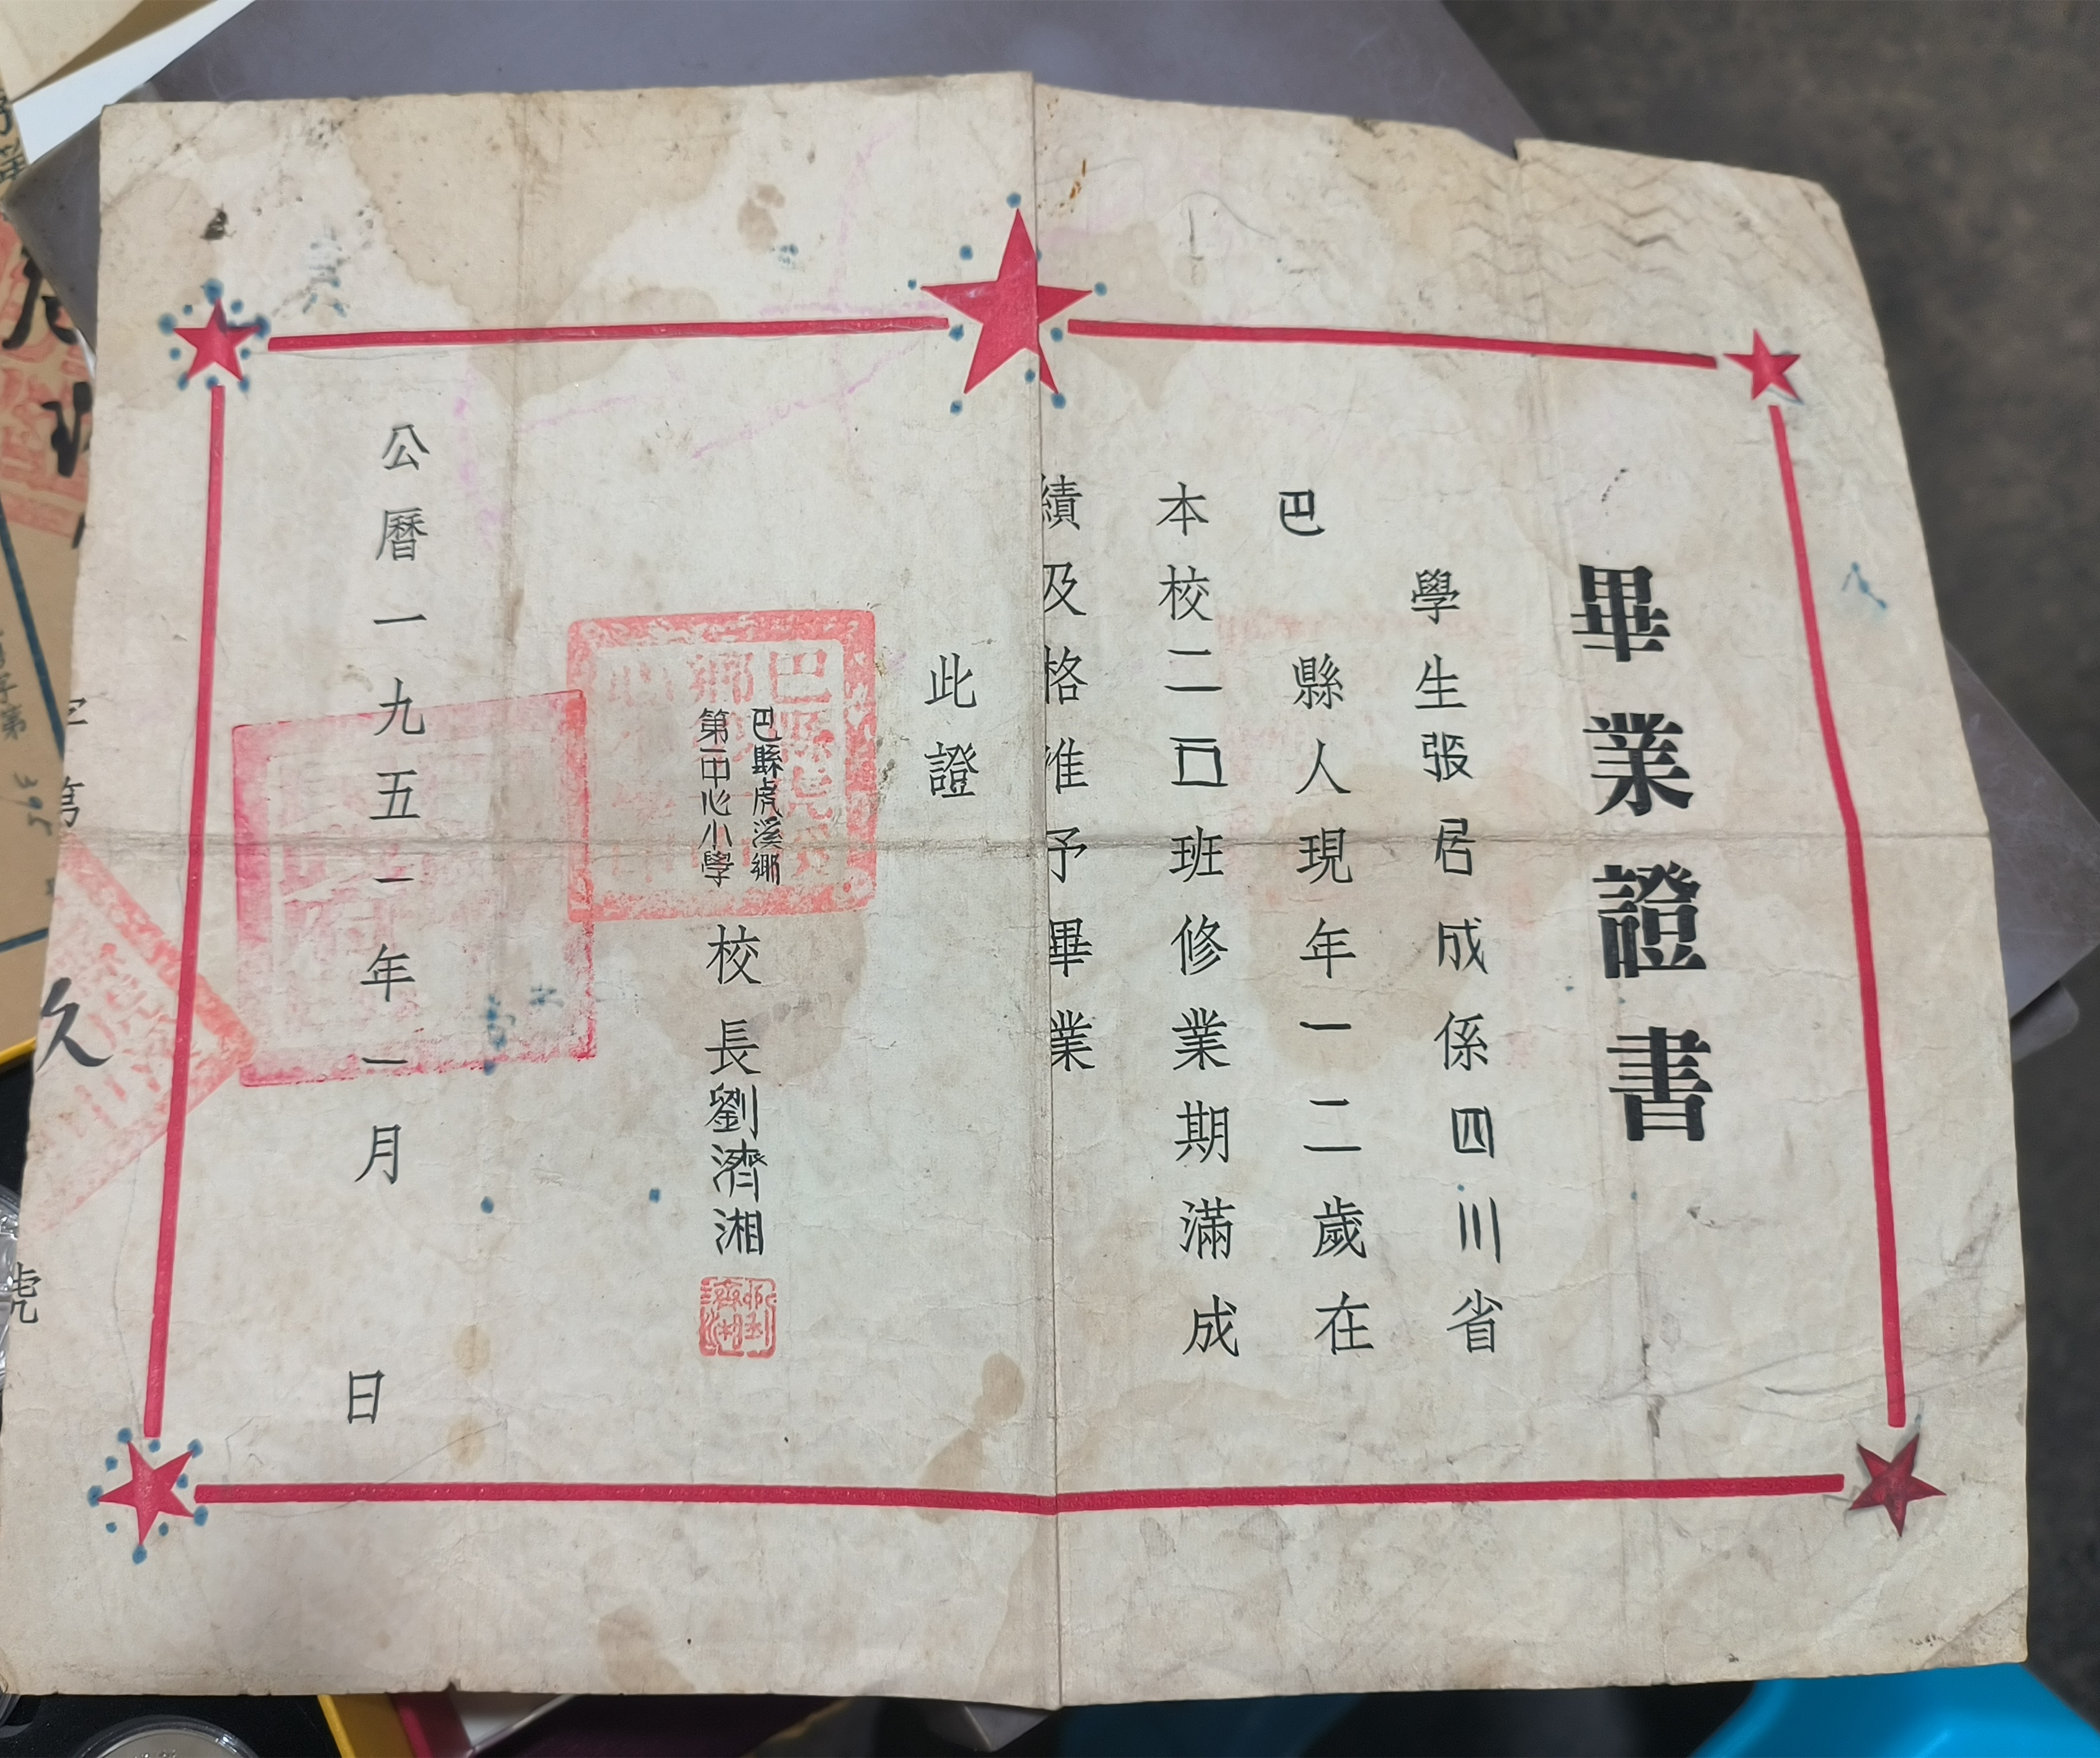 畢業證書
學生張居成係四川省
巴縣人現年一二歲在
本校二囗班修業期滿成
績及格准予畢業
此證
巴縣虎溪鄉
第一中心小學
校長劉濟湘
公曆一九五一年一月 日
字第
久
號